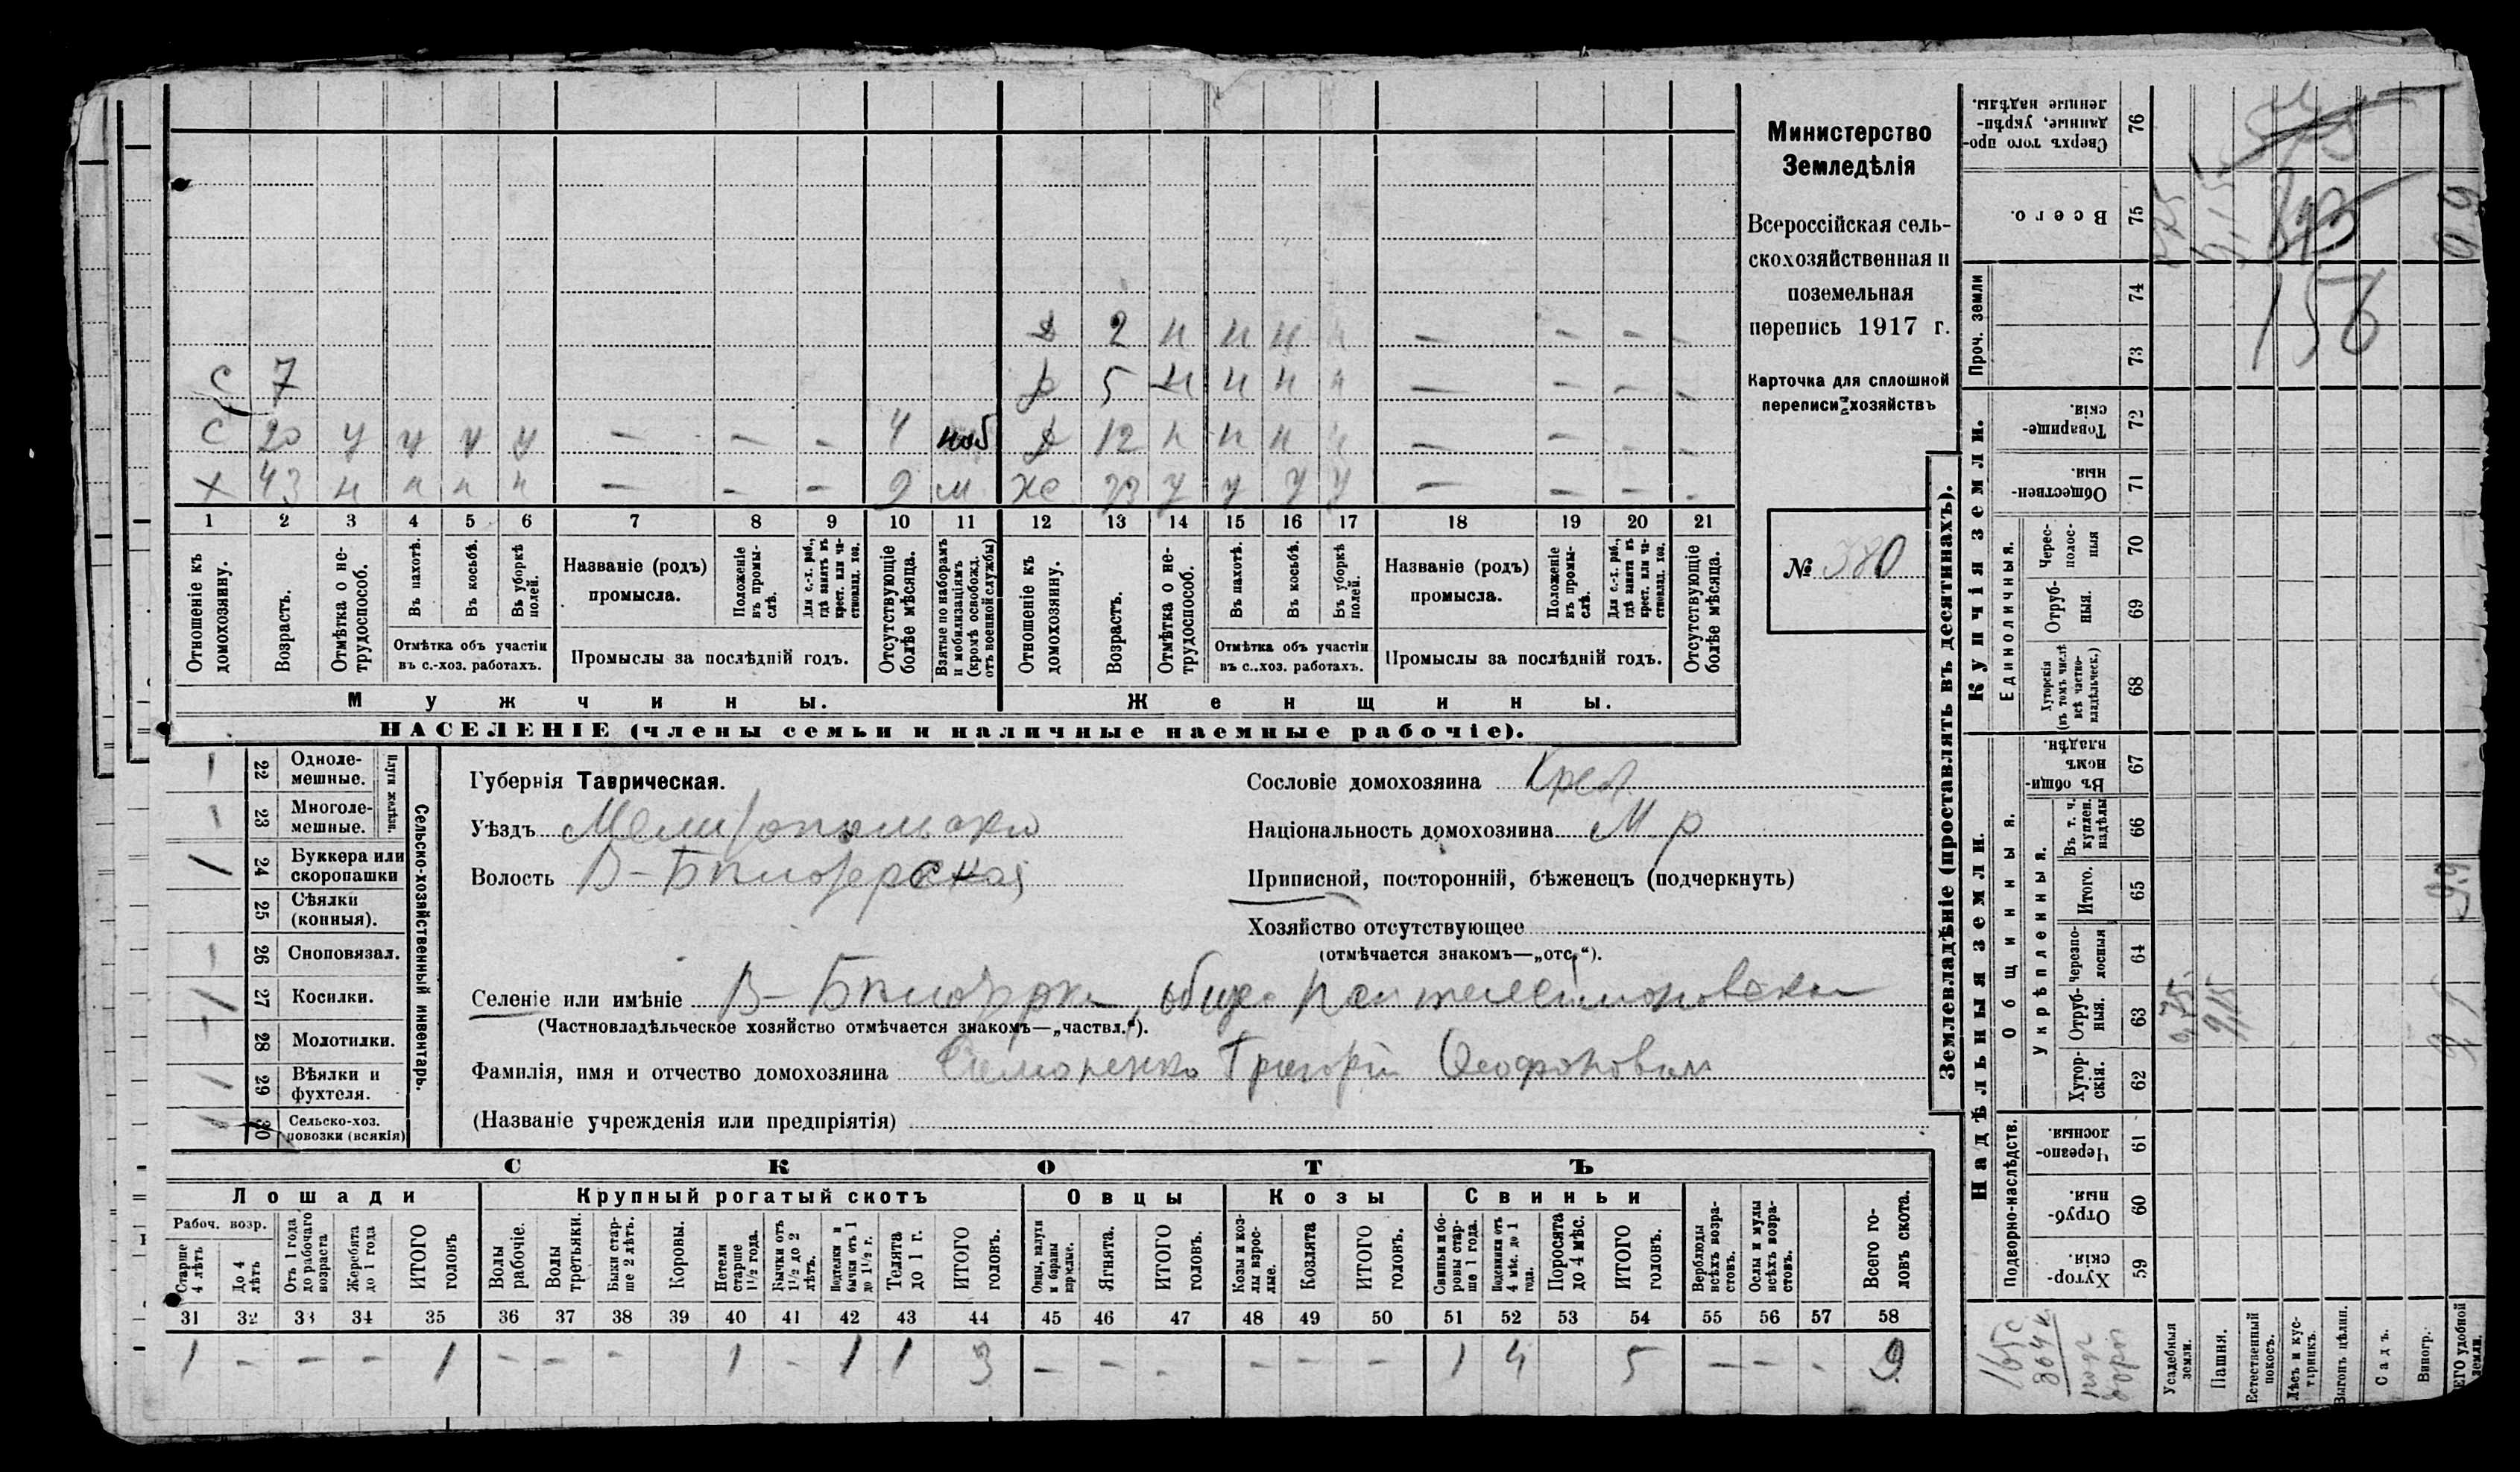 Министерство
Земледѣлія
Всероссійская сель-
скохозяйственная и
поземельная
перепись 1917 г.
Карточка для сплошной
переписи хозяйствъ
№ 380
Д 2 н н н н — — — —
С 7 Д 5 н н н н — — — —
С 20 у у у у — — — 4 моб Д 12 н н н н — — — —
Х 43 н н н н — — — 9 м Же у у у у — — — —
1 2 3 4 5 6 7 8 9 10 11 12 13 14 15 16 17 18 19 20 21
Отношеніе къ домохозяину.
Возрастъ.
Отмѣтка о не-трудоспособ.
Въ пахотѣ.
Въ косьбѣ.
Въ уборкѣ полей.
Отмѣтка объ участіи въ с.-хоз. работахъ.
Названіе (родъ) промысла.
Положеніе въ промы-слѣ.
Для с.-х. раб., гдѣ занятъ въ крест. или ча-стновлад. хоз.
Промыслы за послѣдній годъ.
Отсутствующіе болѣе мѣсяца.
Взятые по наборамъ и мобилизаціямъ (кромѣ освобожд. отъ военной службы)
Отношеніе къ домохозяину.
Возрастъ.
Отмѣтка о не-трудоспособ.
Въ пахотѣ.
Въ косьбѣ.
Въ уборкѣ полей.
Отмѣтка объ участіи въ с..хоз. работахъ.
Названіе (родъ) промысла.
Положеніе въ промы-слѣ.
Для с.-х. раб., гдѣ занята въ крест. или ча-стновлад. хоз.
Промыслы за послѣдній годъ.
Отсутствующіе болѣе мѣсяца.
Мужчины. Женщины.
НАСЕЛЕНІЕ (члены семьи и наличные наемные рабочіе).
1 22 Однолемешные.
1 23 Многолемешные.
Плуги желѣзн.
1 24 Буккера или скоропашки
25 Сѣялки (конныя).
1 26 Сноповязал.
1 27 Косилки.
- 28 Молотилки.
1 29 Вѣялки и фухтеля.
1 30 Сельско-хоз. повозки (всякія)
Сельско-хозяйственный инвентарь.
Губернія Таврическая.
Уѣздъ Мелитопольский
Волость В-Бѣлозерская
Сословіе домохозяина Крест.
Національность домохозяина М. р
Приписной, посторонній, бѣженецъ (подчеркнуть)
Хозяйство отсутствующее
(отмѣчается знакомъ—„отс.“).
Селеніе или имѣніе В-Бѣлозерка, общес Пантелеимоновская
(Частновладѣльческое хозяйство отмѣчается знакомъ—„частвл.“).
Фамилія, имя и отчество домохозяина Григорій
(Названіе учрежденія или предпріятія)
СКОТЪ
Лошади Крупный рогатый скотъ Овцы Козы Свиньи
Рабоч. возр.
Старше 4 лѣтъ
До 4 лѣтъ
Отъ 1 года до рабочаго возраста
Жеребята до 1 года
ИТОГО головъ
Волы рабочіе.
Волы третьяки.
Быки стар-ше 2 лѣтъ.
Коровы.
Нетели старше 1 1/2 года.
Бычки отъ 1 1/2 до 2 лѣтъ.
Подтелки и бычки отъ 1 до 1 1/2 г.
Телята до 1 г.
ИТОГО головъ.
Овцы, валухи и бараны взрослые.
Ягнята.
ИТОГО головъ.
Козы и коз-лы взрос-лые.
Козлята
ИТОГО головъ.
Свиньи и бо-ровы стар-ше 1 года.
Подсвинки отъ 4 мѣс. до 1 года.
Поросята до 4 мѣс.
ИТОГО головъ.
Верблюды всѣхъ возра-стовъ.
Ослы и мулы всѣхъ возра-стовъ.
Всего го-ловъ скота.
31 32 33 34 35 36 37 38 39 40 41 42 43 44 45 46 47 48 49 50 51 52 53 54 55 56 57 58
1 - - - 1 - - - 1 - 1 1 3 - - - - - - 1 4 5 - - - 9
Землевладѣніе (проставлять въ десятинахъ).
Купчія земли.
Надѣльныя земли.
Сверхъ того про-данные, укрѣп-ленные надѣлы. 76
Всего. 75
Проч. земли 74 73
Товарище-скія. 72
Обществен-ныя. 71
Единоличныя.
Черес-полос-ныя 70
Отруб-ныя. 69
Хуторскія (въ томъ числѣ всѣ частно-владѣльческ.) 68
Общинныя.
Въ общи-номъ владѣн. 67
Укрѣпленныя.
Въ т. ч. куплен. надѣлы 66
Итого. 65
Черезпо-лосныя 64
Отруб-ныя. 63
Хутор-скія. 62
Подворно-наслѣдств.
Черезпо-лосныя. 61
Отруб-ныя. 60
Хутор-скія 59
Усадебныя земли. 0,75
Пашня. 9,15
Естественный покосъ.
Лѣсъ и кус-тарникъ.
Выгонъ цѣлин.
Садъ.
Виногр.
ЕГО удобной земли. 9,9
156
165 с